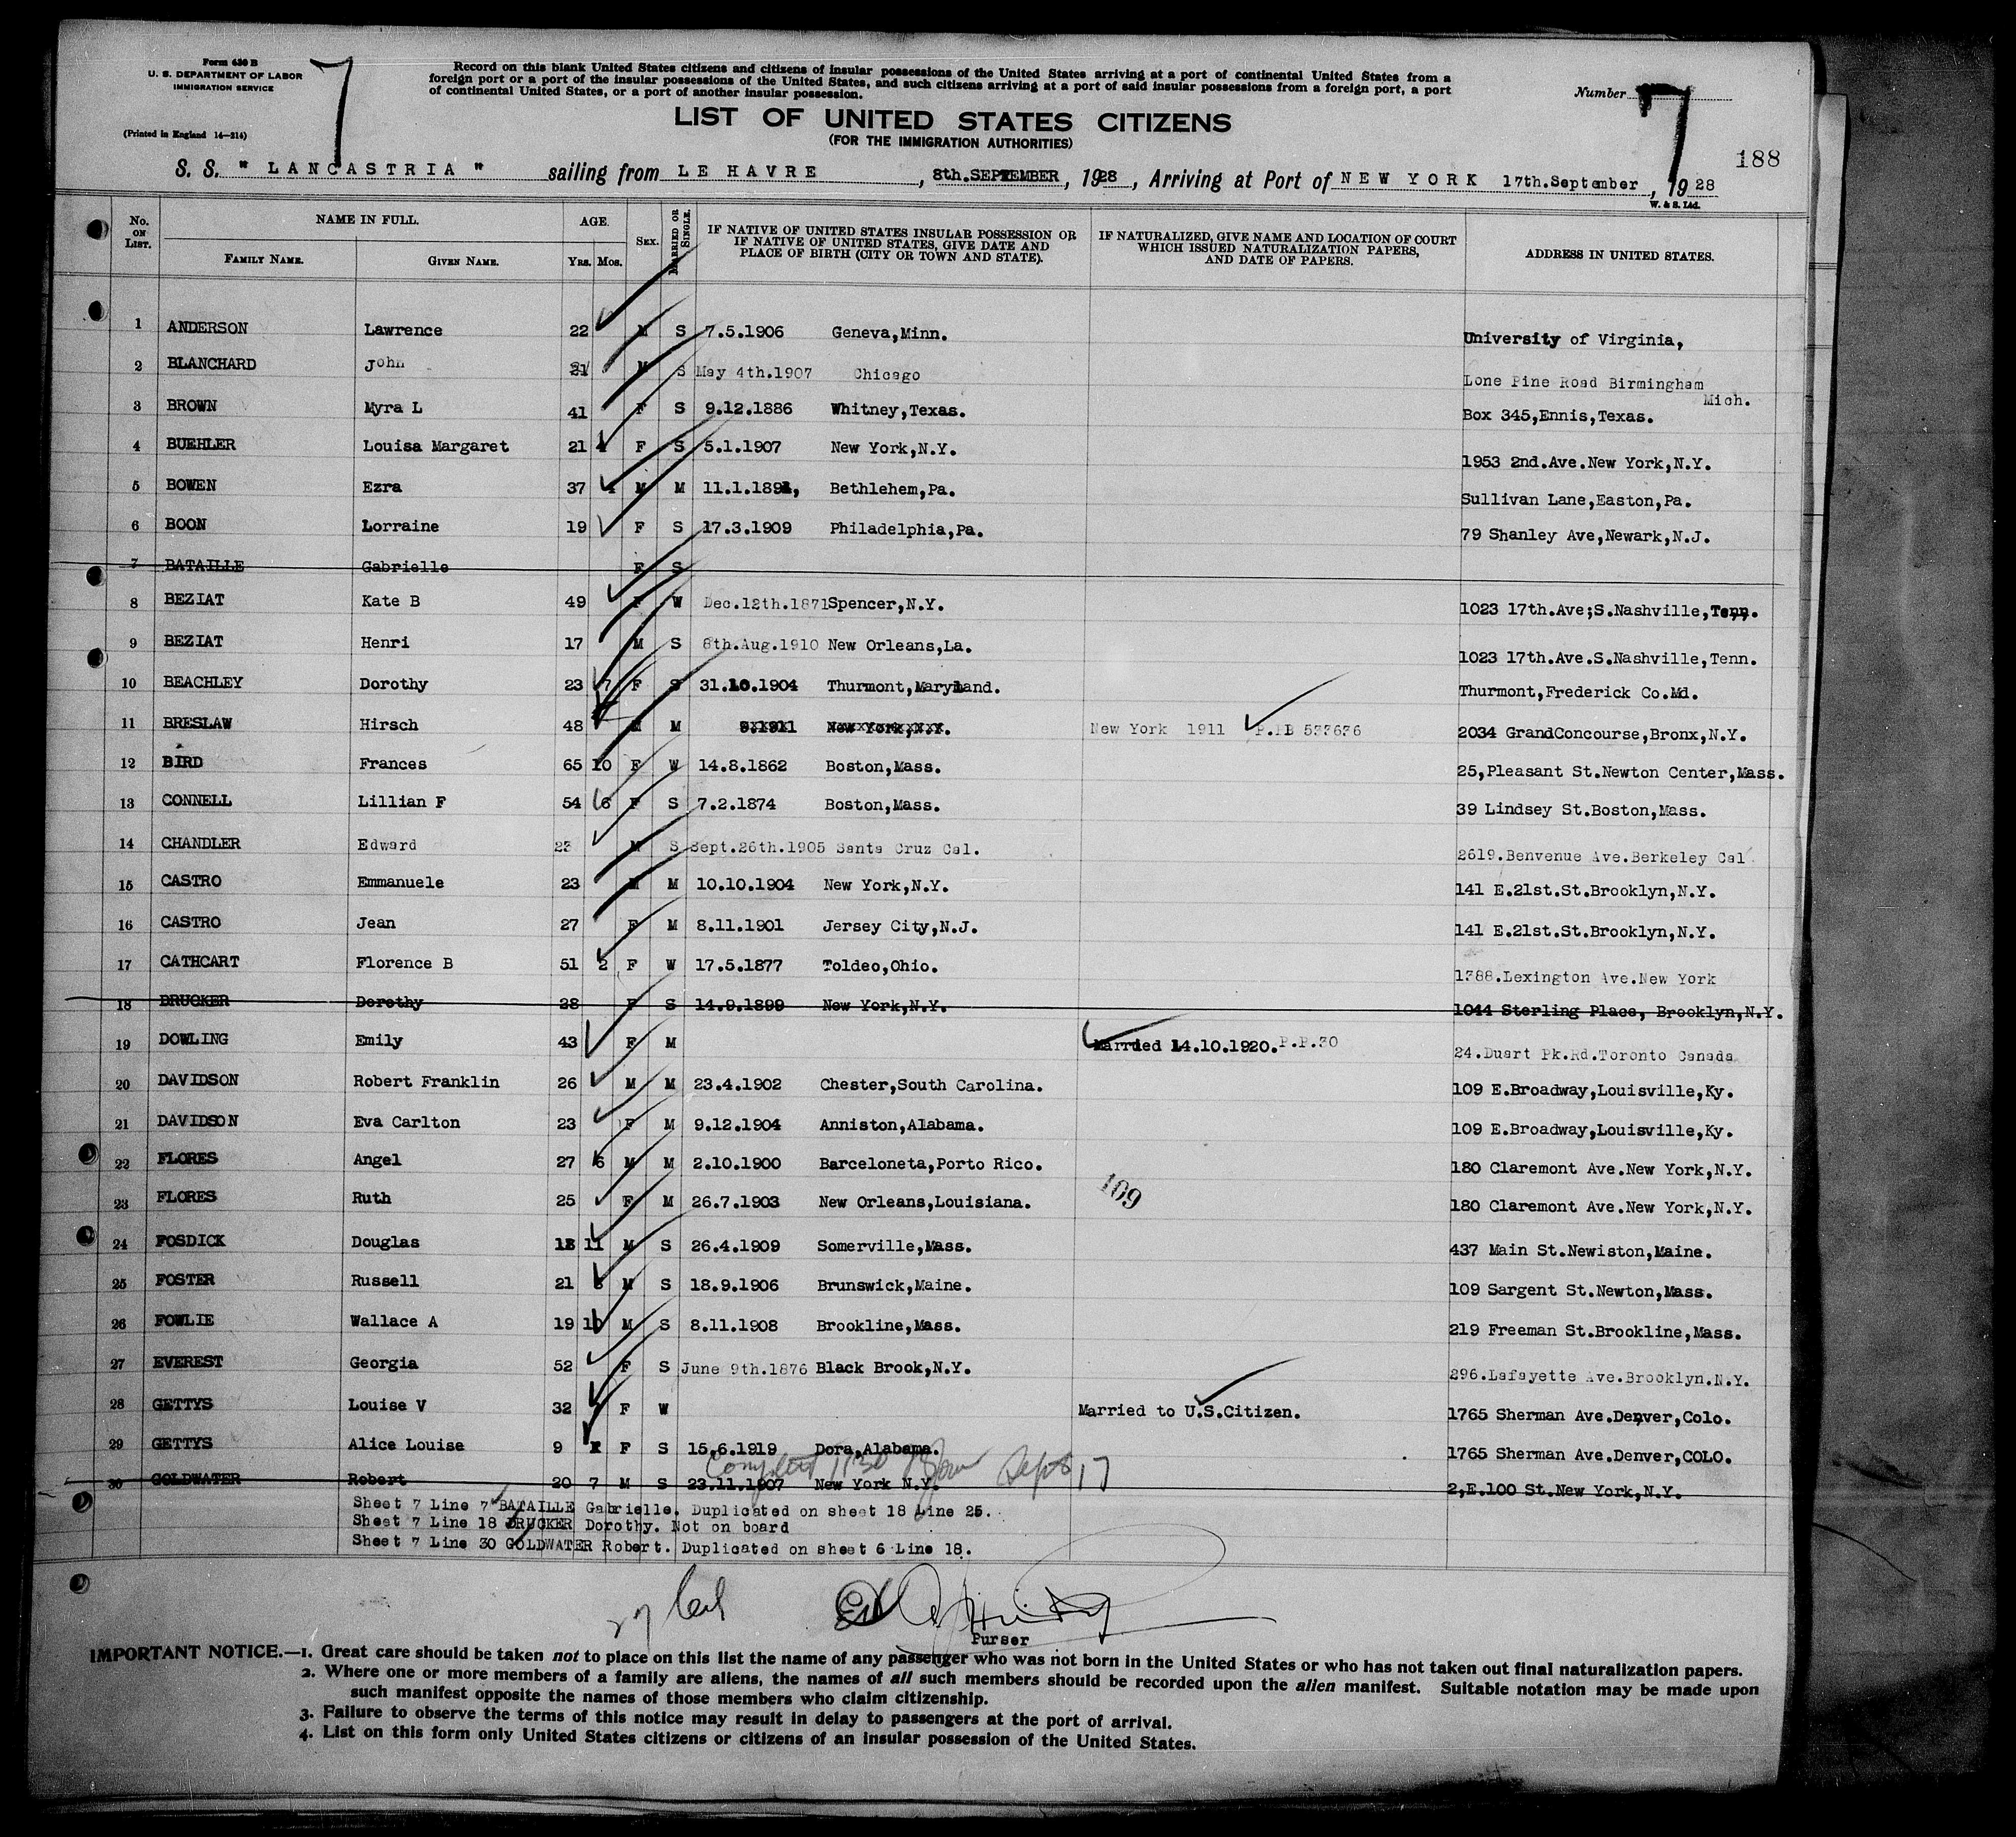 Form 630 B
U. S. DEPARTMENT OF LABOR
IMMIGRATION SERVICE
(Printed in England 14—214)
7
Record on this blank United States citizens and citizens of insular possessions of the United States arriving at a port of continental United States from a
foreign port or a port of the insular possessions of the United States, and such citizens arriving at a port of said insular possessions from a foreign port, a port
of continental United States, or a port of another insular possession.
Number 7
LIST OF UNITED STATES CITIZENS
(FOR THE IMMIGRATION AUTHORITIES)
188
S. S. " LANCASTRIA " sailing from LE HAVRE , 8th.SEPTEMBER , 1928 , Arriving at Port of NEW YORK 17th.September , 1928
W. & S. Ltd.
No. ON LIST. NAME IN FULL. FAMILY NAME. GIVEN NAME. AGE. YRS. MOS. SEX. MARRIED OR SINGLE. IF NATIVE OF UNITED STATES INSULAR POSSESSION OR IF NATIVE OF UNITED STATES, GIVE DATE AND PLACE OF BIRTH (CITY OR TOWN AND STATE). IF NATURALIZED, GIVE NAME AND LOCATION OF COURT WHICH ISSUED NATURALIZATION PAPERS, AND DATE OF PAPERS. ADDRESS IN UNITED STATES.
1 ANDERSON Lawrence 22 M S 7.5.1906 Geneva,Minn. University of Virginia,
2 BLANCHARD John 21 M S May 4th.1907 Chicago Lone Pine Road Birmingham Mich.
3 BROWN Myra L 41 F S 9.12.1886 Whitney,Texas. Box 345,Ennis,Texas.
4 BUEHLER Louisa Margaret 21 F S 5.1.1907 New York,N.Y. 1953 2nd.Ave.New York,N.Y.
5 BOWEN Ezra 37 M M 11.1.1891, Bethlehem,Pa. Sullivan Lane,Easton,Pa.
6 BOON Lorraine 19 F S 17.3.1909 Philadelphia,Pa. 79 Shanley Ave,Newark,N.J.
7 BATAILLE Gabrielle F S
8 BEZIAT Kate B 49 F W Dec.12th.1871 Spencer,N.Y. 1023 17th.Ave;S.Nashville,Tenn.
9 BEZIAT Henri 17 M S 8th.Aug.1910 New Orleans,La. 1023 17th.Ave.S.Nashville,Tenn.
10 BEACHLEY Dorothy 23 7 F S 31.10.1904 Thurmont,Maryland. Thurmont,Frederick Co.Md.
11 BRESLAW Hirsch 48 M M New York,N.Y. New York 1911 533636 2034 GrandConcourse,Bronx,N.Y.
12 BIRD Frances 65 10 F W 14.8.1862 Boston,Mass. 25,Pleasant St.Newton Center,Mass.
13 CONNELL Lillian F 54 6 F S 7.2.1874 Boston,Mass. 39 Lindsey St.Boston,Mass.
14 CHANDLER Edward 23 M S Sept.26th.1905 Santa Cruz Cal. 2619.Benvenue Ave.Berkeley Cal
15 CASTRO Emmanuele 23 M M 10.10.1904 New York,N.Y. 141 E.21st.St.Brooklyn,N.Y.
16 CASTRO Jean 27 F M 8.11.1901 Jersey City,N.J. 141 E.21st.St.Brooklyn,N.Y.
17 CATHCART Florence B 51 2 F W 17.5.1877 Toldeo,Ohio. 1388.Lexington Ave.New York
18 DRUCKER Dorothy 28 F S 14.9.1899 New York,N.Y. 1044 Sterling Place, Brooklyn,N.Y.
19 DOWLING Emily 43 F M Married 14.10.1920. P.P.30 24.Duart Pk.Rd.Toronto Canada
20 DAVIDSON Robert Franklin 26 M M 23.4.1902 Chester,South Carolina. 109 E.Broadway,Louisville,Ky.
21 DAVIDSON Eva Carlton 23 F M 9.12.1904 Anniston,Alabama. 109 E.Broadway,Louisville,Ky.
22 FLORES Angel 27 6 M M 2.10.1900 Barceloneta,Porto Rico. 180 Claremont Ave.New York,N.Y.
23 FLORES Ruth 25 F M 26.7.1903 New Orleans,Louisiana. 109 180 Claremont Ave.New York,N.Y.
24 FOSDICK Douglas 18 11 M S 26.4.1909 Somerville,Mass. 437 Main St.Newiston,Maine.
25 FOSTER Russell 21 M S 18.9.1906 Brunswick,Maine. 109 Sargent St.Newton,Mass.
26 FOWLIE Wallace A 19 10 M S 8.11.1908 Brookline,Mass. 219 Freeman St.Brookline,Mass.
27 EVEREST Georgia 52 F S June 9th.1876 Black Brook,N.Y. 296.Lafayette Ave.Brooklyn.N.Y.
28 GETTYS Louise V 32 F W Married to U.S.Citizen. 1765 Sherman Ave.Denver,Colo.
29 GETTYS Alice Louise 9 F S 15.6.1919 Dora,Alabama. 1765 Sherman Ave.Denver,COLO.
Sept 17
30 GOLDWATER Robert 20 7 M S 23.11.1907 New York N.Y. 2,E.100 St.New York,N.Y.
Sheet 7 Line 7 BATAILLE Gabrielle. Duplicated on sheet 18 Line 25.
Sheet 7 Line 18 DRUCKER Dorothy. Not on board
Sheet 7 Line 30 GOLDWATER Robert. Duplicated on sheet 6 Line 18.
Purser
IMPORTANT NOTICE.—1. Great care should be taken not to place on this list the name of any passenger who was not born in the United States or who has not taken out final naturalization papers.
2. Where one or more members of a family are aliens, the names of all such members should be recorded upon the alien manifest. Suitable notation may be made upon
such manifest opposite the names of those members who claim citizenship.
3. Failure to observe the terms of this notice may result in delay to passengers at the port of arrival.
4. List on this form only United States citizens or citizens of an insular possession of the United States.